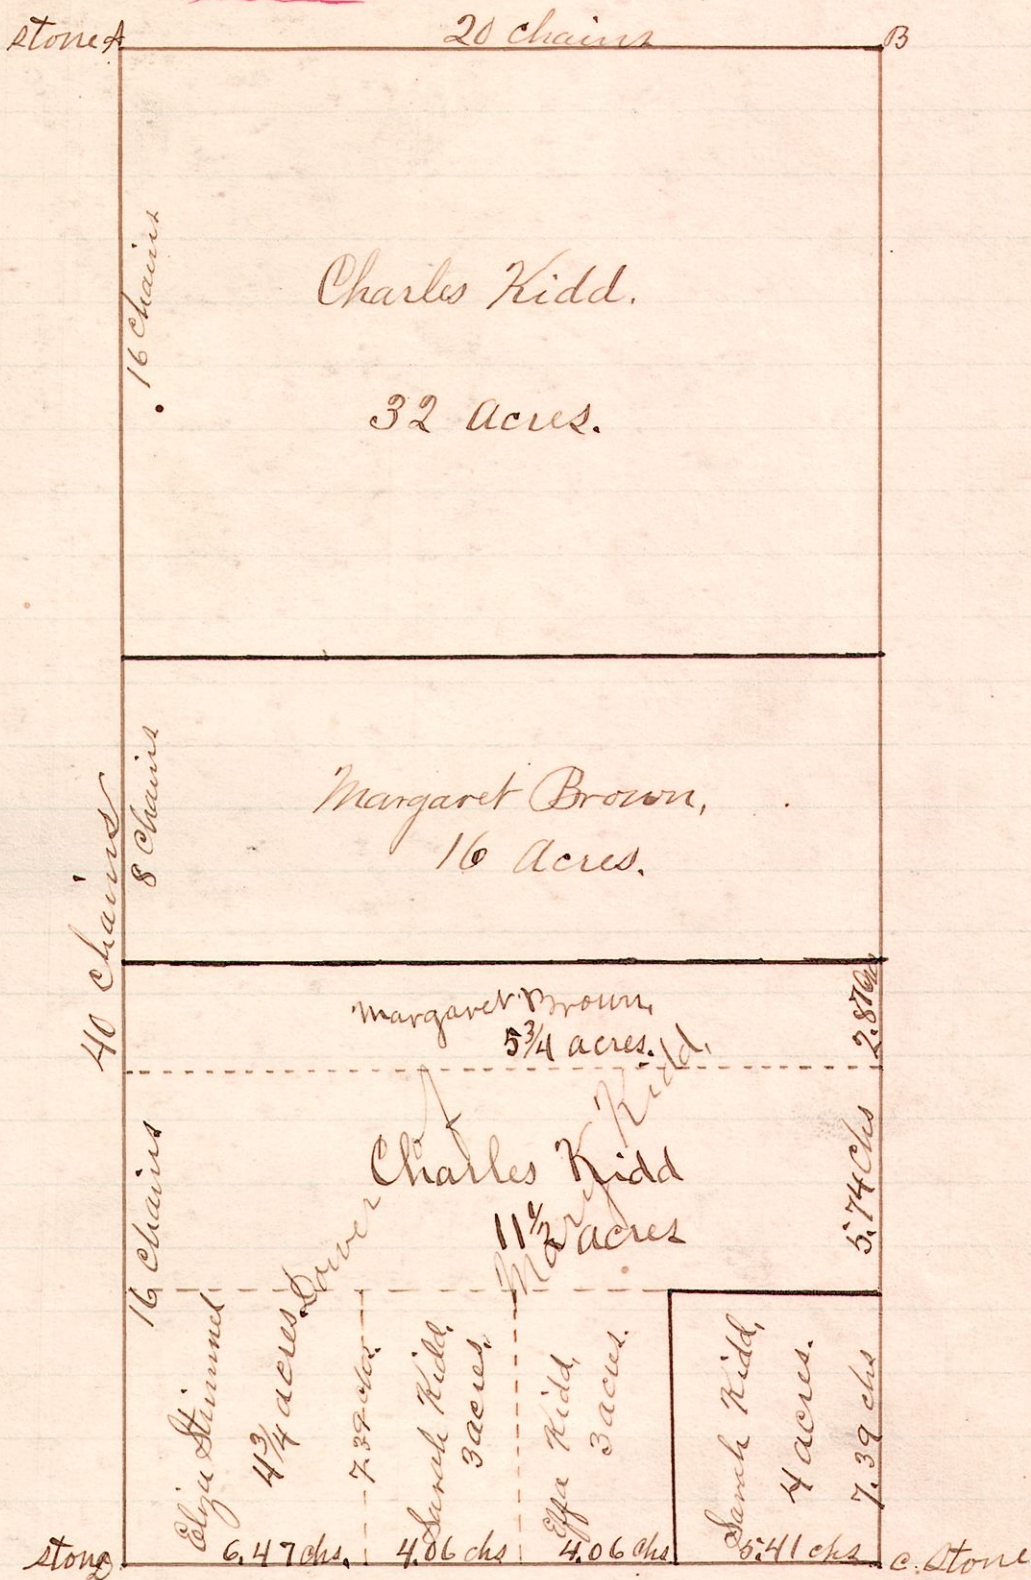 stone A
20 chains
B
16 chains
Charles Kidd.
32 acres.
40 chains
8 chains
Margaret Brown,
16 acres.
Margaret Brown,
5 3/4 acres.
2.87
16 chains
Dower of Mary Kidd.
Charles Kidd
11 1/2 acres
5.74 chs
Eliza Stimmel
4 3/4 acres.
7.39 chs.
Sarah Kidd,
3 acres.
Effa Kidd,
3 acres.
Sarah Kidd,
4 acres.
7.39 chs
stone D
6.47 chs.
4.06 chs
4.06 chs
5.41 chs
C. stone